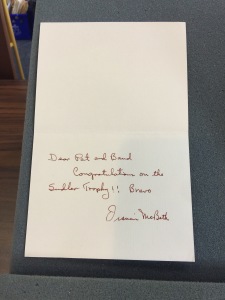 Dear Pat and Band
Congratulations on the
Sudler Trophy!! Bravo
Francis McBeth